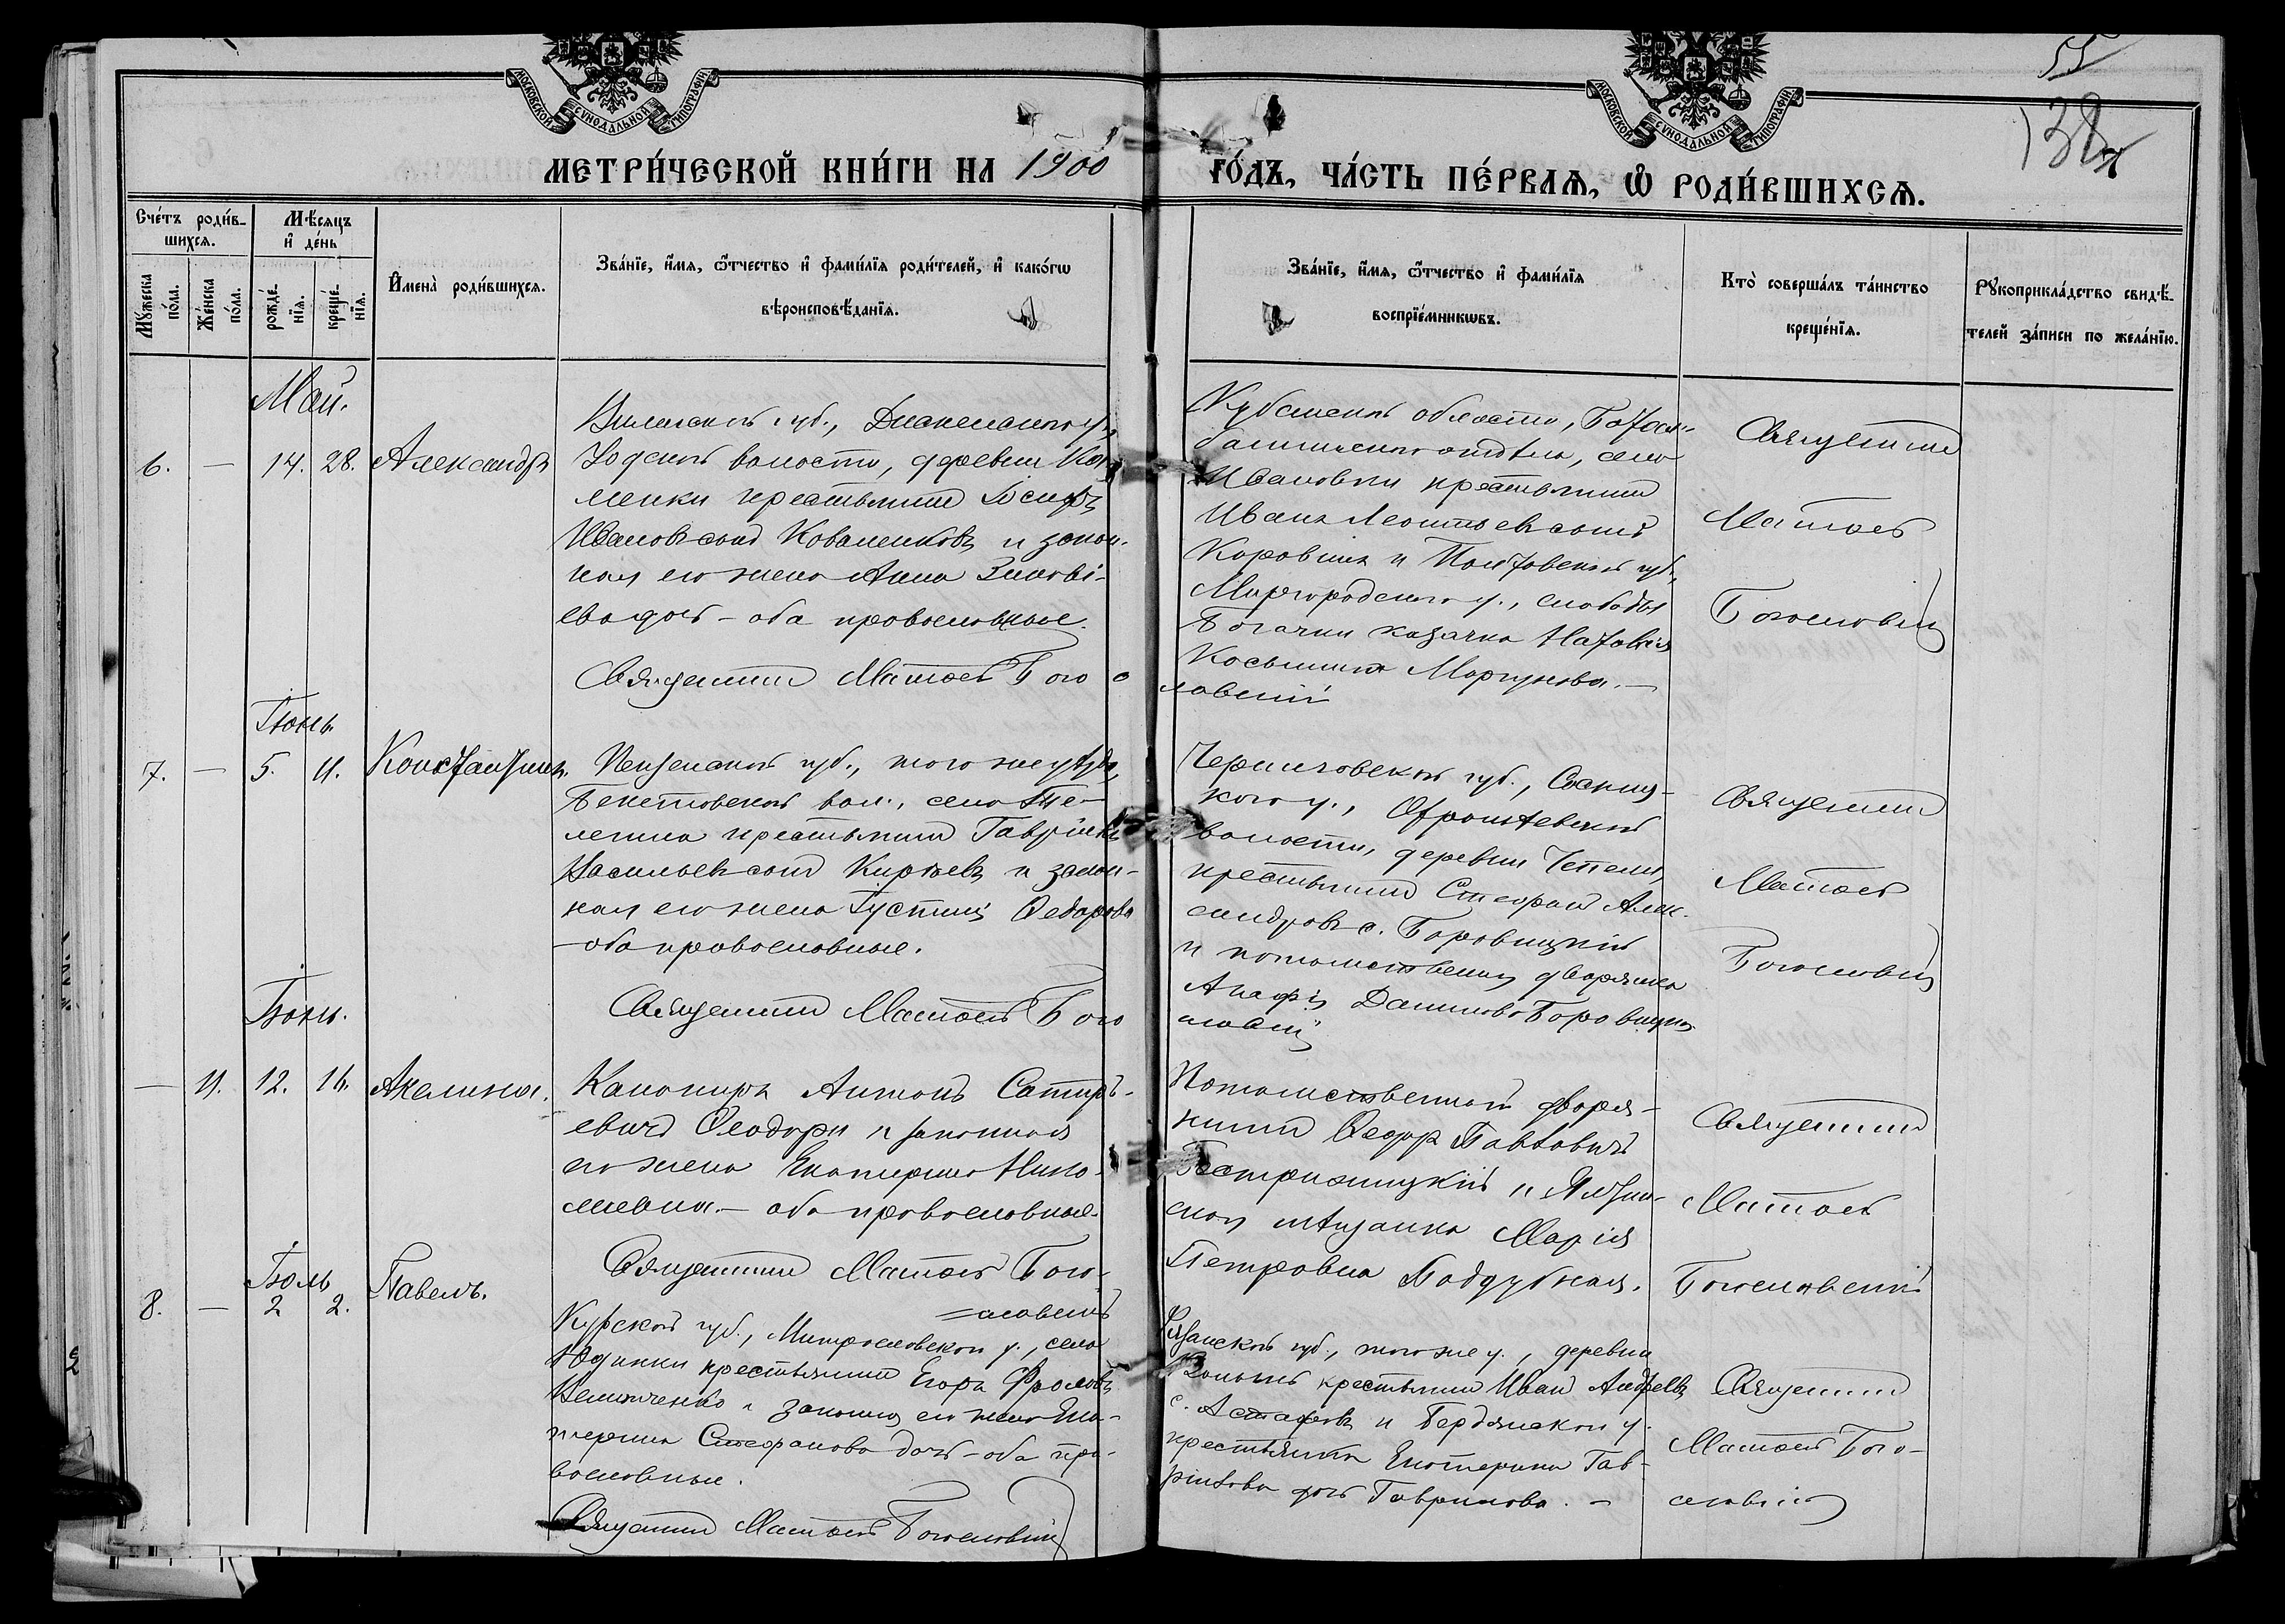 55
138
МОСКОВСКОЙ СѴНОДАЛЬНОЙ ТИПОГРАФІИ
МОСКОВСКОЙ СѴНОДАЛЬНОЙ ТИПОГРАФІИ
МЕТРИ́ЧЕСКОЙ КНИ́ГИ НА 1900 ГО́ДЪ, ЧА́СТЬ ПЕ́РВАѦ, Ѡ РОДИ́ВШИХСѦ.
Сче́тъ роди́в-
шихсѧ.
Мѣ́сѧцъ
и҆ де́нь
Мꙋ́жеска по́ла.
Же́нска по́ла.
рожде́-
нїѧ.
креще́-
нїѧ.
И҆мена̀ роди́вшихсѧ.
Зва́нїе, и҆́мѧ, ѻ҆́тчество и҆ фами́лїѧ роди́телей, и҆ како́гѡ
вѣроисповѣ́данїѧ.
Зва́нїе, и҆́мѧ, ѻ҆́тчество и҆ фами́лїѧ
воспрїе́мникѡвъ.
Кто̀ соверша́лъ та́инство
креще́нїѧ.
Рꙋкоприкла́дство свидѣ́-
телей за́писи по жела́нїю.
Май.
6. — 14. 28. Александръ
Виленской губ., Дисненскаго у.,
Іодской волости, деревни
крестьянинъ Іосифъ
Ивановъ сынъ Коваленковъ и закон-
ная его жена Анна Зиновi-
ева дочь - оба православные.
Священникъ Матѳей Бого
словскій
Кубанской области, Баталпашинскаго отдѣла, село
Ивановки крестьянинъ
Иванъ Леонтьевъ сынъ
Коровинъ и Полтавской губ.,
Миргородскаго у., слободы
Богачки казачка Наталія
Косьмина Моргунова. —
Священникъ
Матѳей
Богословскій
Іюнь.
7. — 5. 11. Константинъ.
Пензенской губ., того же уѣзда,
Бекетовской вол., село
крестьянинъ Гавріилъ
Васильевъ сынъ Киреевъ и закон-
ная его жена Іустинія Ѳедорова
— оба православные.
Священникъ Матѳей Бого
словскій
Черниговской губ., Сосниц-
каго у.,
волости, деревни
крестьянинъ Стефанъ Алек-
сандровъ с. Боровицкій
и потомственная дворянка
Агафія Данилова Боровицкая
Священникъ
Матѳей
Богословскій
Іюнь.
— 11. 12. 16. Акелина.
Канониръ Антонъ
евичъ Ѳеодори и законная
его жена Екатерина Нико-
лаевна. — оба православные.
Священникъ Матѳей Бого-
=словскій
Потомственный дворя-
нинъ Ѳедоръ Павловичъ
и Ялтин-
ская мѣщанка Марія
Петровна Поддубная.
Священникъ
Матѳей
Богословскій
Іюль
8. — 2 2. Павелъ.
Курской губ., у., села
Юдинки крестьянинъ Егоръ Фроловъ
и законная его жена Ека-
терина Стефанова дочь - оба пра-
вославные.
Священникъ Матѳей Богословскій
Рязанской губ., того же у., деревни
крестьянинъ Иванъ Андреевъ
с. Астафьевъ и Бердянскаго у.
крестьянка Екатерина Гав-
ріилова дочь Гаврилова. —
Священникъ
Матѳей Бого-
словскій